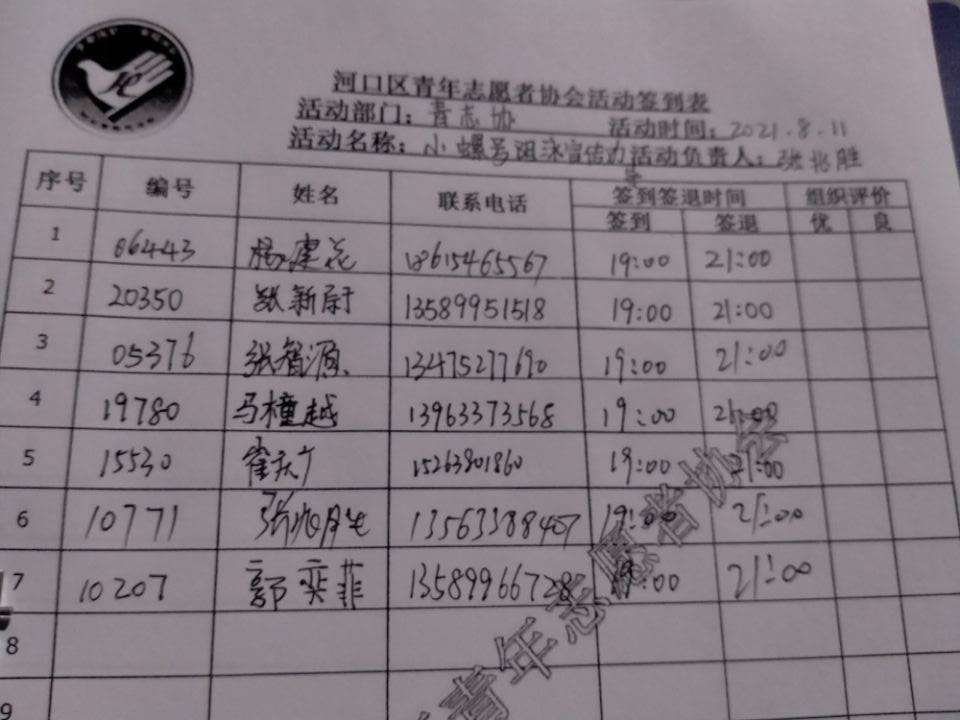 河口区青年志愿者协会活动签到表
活动部门：青志协 活动时间：2021.8.11
活动名称：小螺号阻泳宣传 活动负责人：张兆胜
序号 编号 姓名 联系电话 签到签退时间 组织评价
签到 签退 优 良
1 06443 杨建花 18615465567 19:00 21:00
2 20350 张新尉 13589951518 19:00 21:00
3 05376 张智源 13475277690 19:00 21:00
4 19780 马橦越 13963373568 19:00 21:00
5 15530 崔庆广 15263801860 19:00 21:00
6 10771 张兆胜 13563388407 19:00 21:00
7 10207 郭奕菲 13589966728 19:00 21:00
8
9
青年志愿者协会